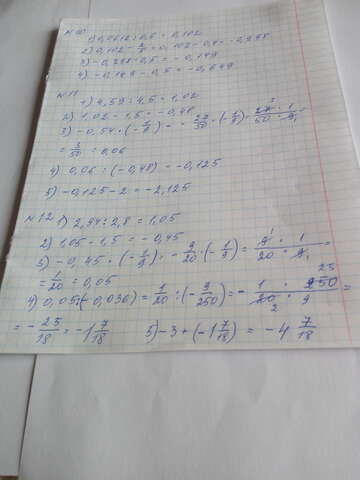 №10
1) 0,0612 : 0,6 = 0,102
2) 0,102 - 2/5 = 0,102 - 0,4 = -0,298
3) -0,298 · 0,5 = -0,149
4) -0,149 - 0,5 = -0,649
№11
1) 4,59 : 4,5 = 1,02
2) 1,02 - 1,5 = -0,48
3) -0,54 · (-1/9) = - 27/50 · (-1/9) = 27 · 1 / 50 · 9 =
= 3/50 = 0,06
4) 0,06 : (-0,48) = -0,125
5) -0,125 - 2 = -2,125
№12 1) 2,94 : 2,8 = 1,05
2) 1,05 - 1,5 = -0,45
3) -0,45 · (-1/9) = - 9/20 · (-1/9) = 9 · 1 / 20 · 9 =
= 1/20 = 0,05
4) 0,05 : (-0,036) = 1/20 : (-9/250) = - 1 · 250 / 20 · 9 =
= - 25/18 = -1 7/18 5) -3 + (-1 7/18) = -4 7/18